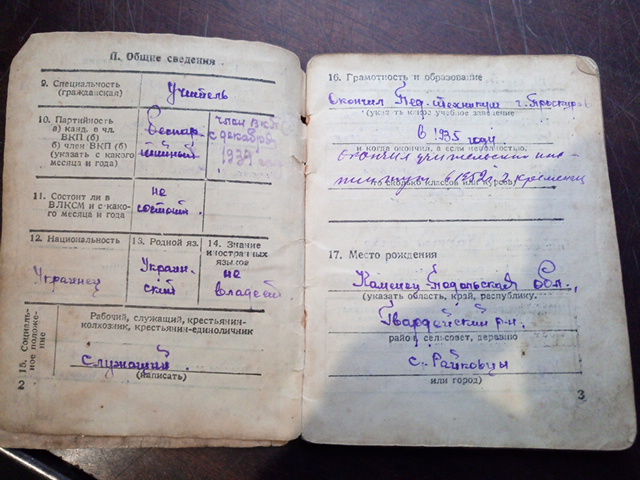 II. Общие сведения
9. Специальность
(гражданская)
Учитель
10. Партийность
а) канд. в чл.
ВКП (б)
б) член ВКП (б)
(указать с какого
месяца и года)
Беспар-
тийный
член ВКП(б)
с декабря
1939 года
11. Состоит ли в
ВЛКСМ и с како-
го месяца и года
не
состоит.
12. Национальность
Украинец
13. Родной яз.
Украин-
ский
14. Знание
иностранных
языков
не
владеет
15. Социаль-
ное положе-
ние
Рабочий, служащий, крестьянин-
колхозник, крестьянин-единоличник
служащий
(написать)
2
16. Грамотность и образование
Окончил Пед. техникум г. Проскуров
(указать какое учебное заведение
в 1935 году
и когда окончил, а если неполностью,
окончил учительский инс-
то сколько классов или курсов)
титут в 1952 г. г. Кременец
17. Место рождения
Каменец-Подольская обл.,
(указать область, край, республику,
Гвардейский р-н.
район, сельсовет, деревню
с. Райковцы
или город)
3